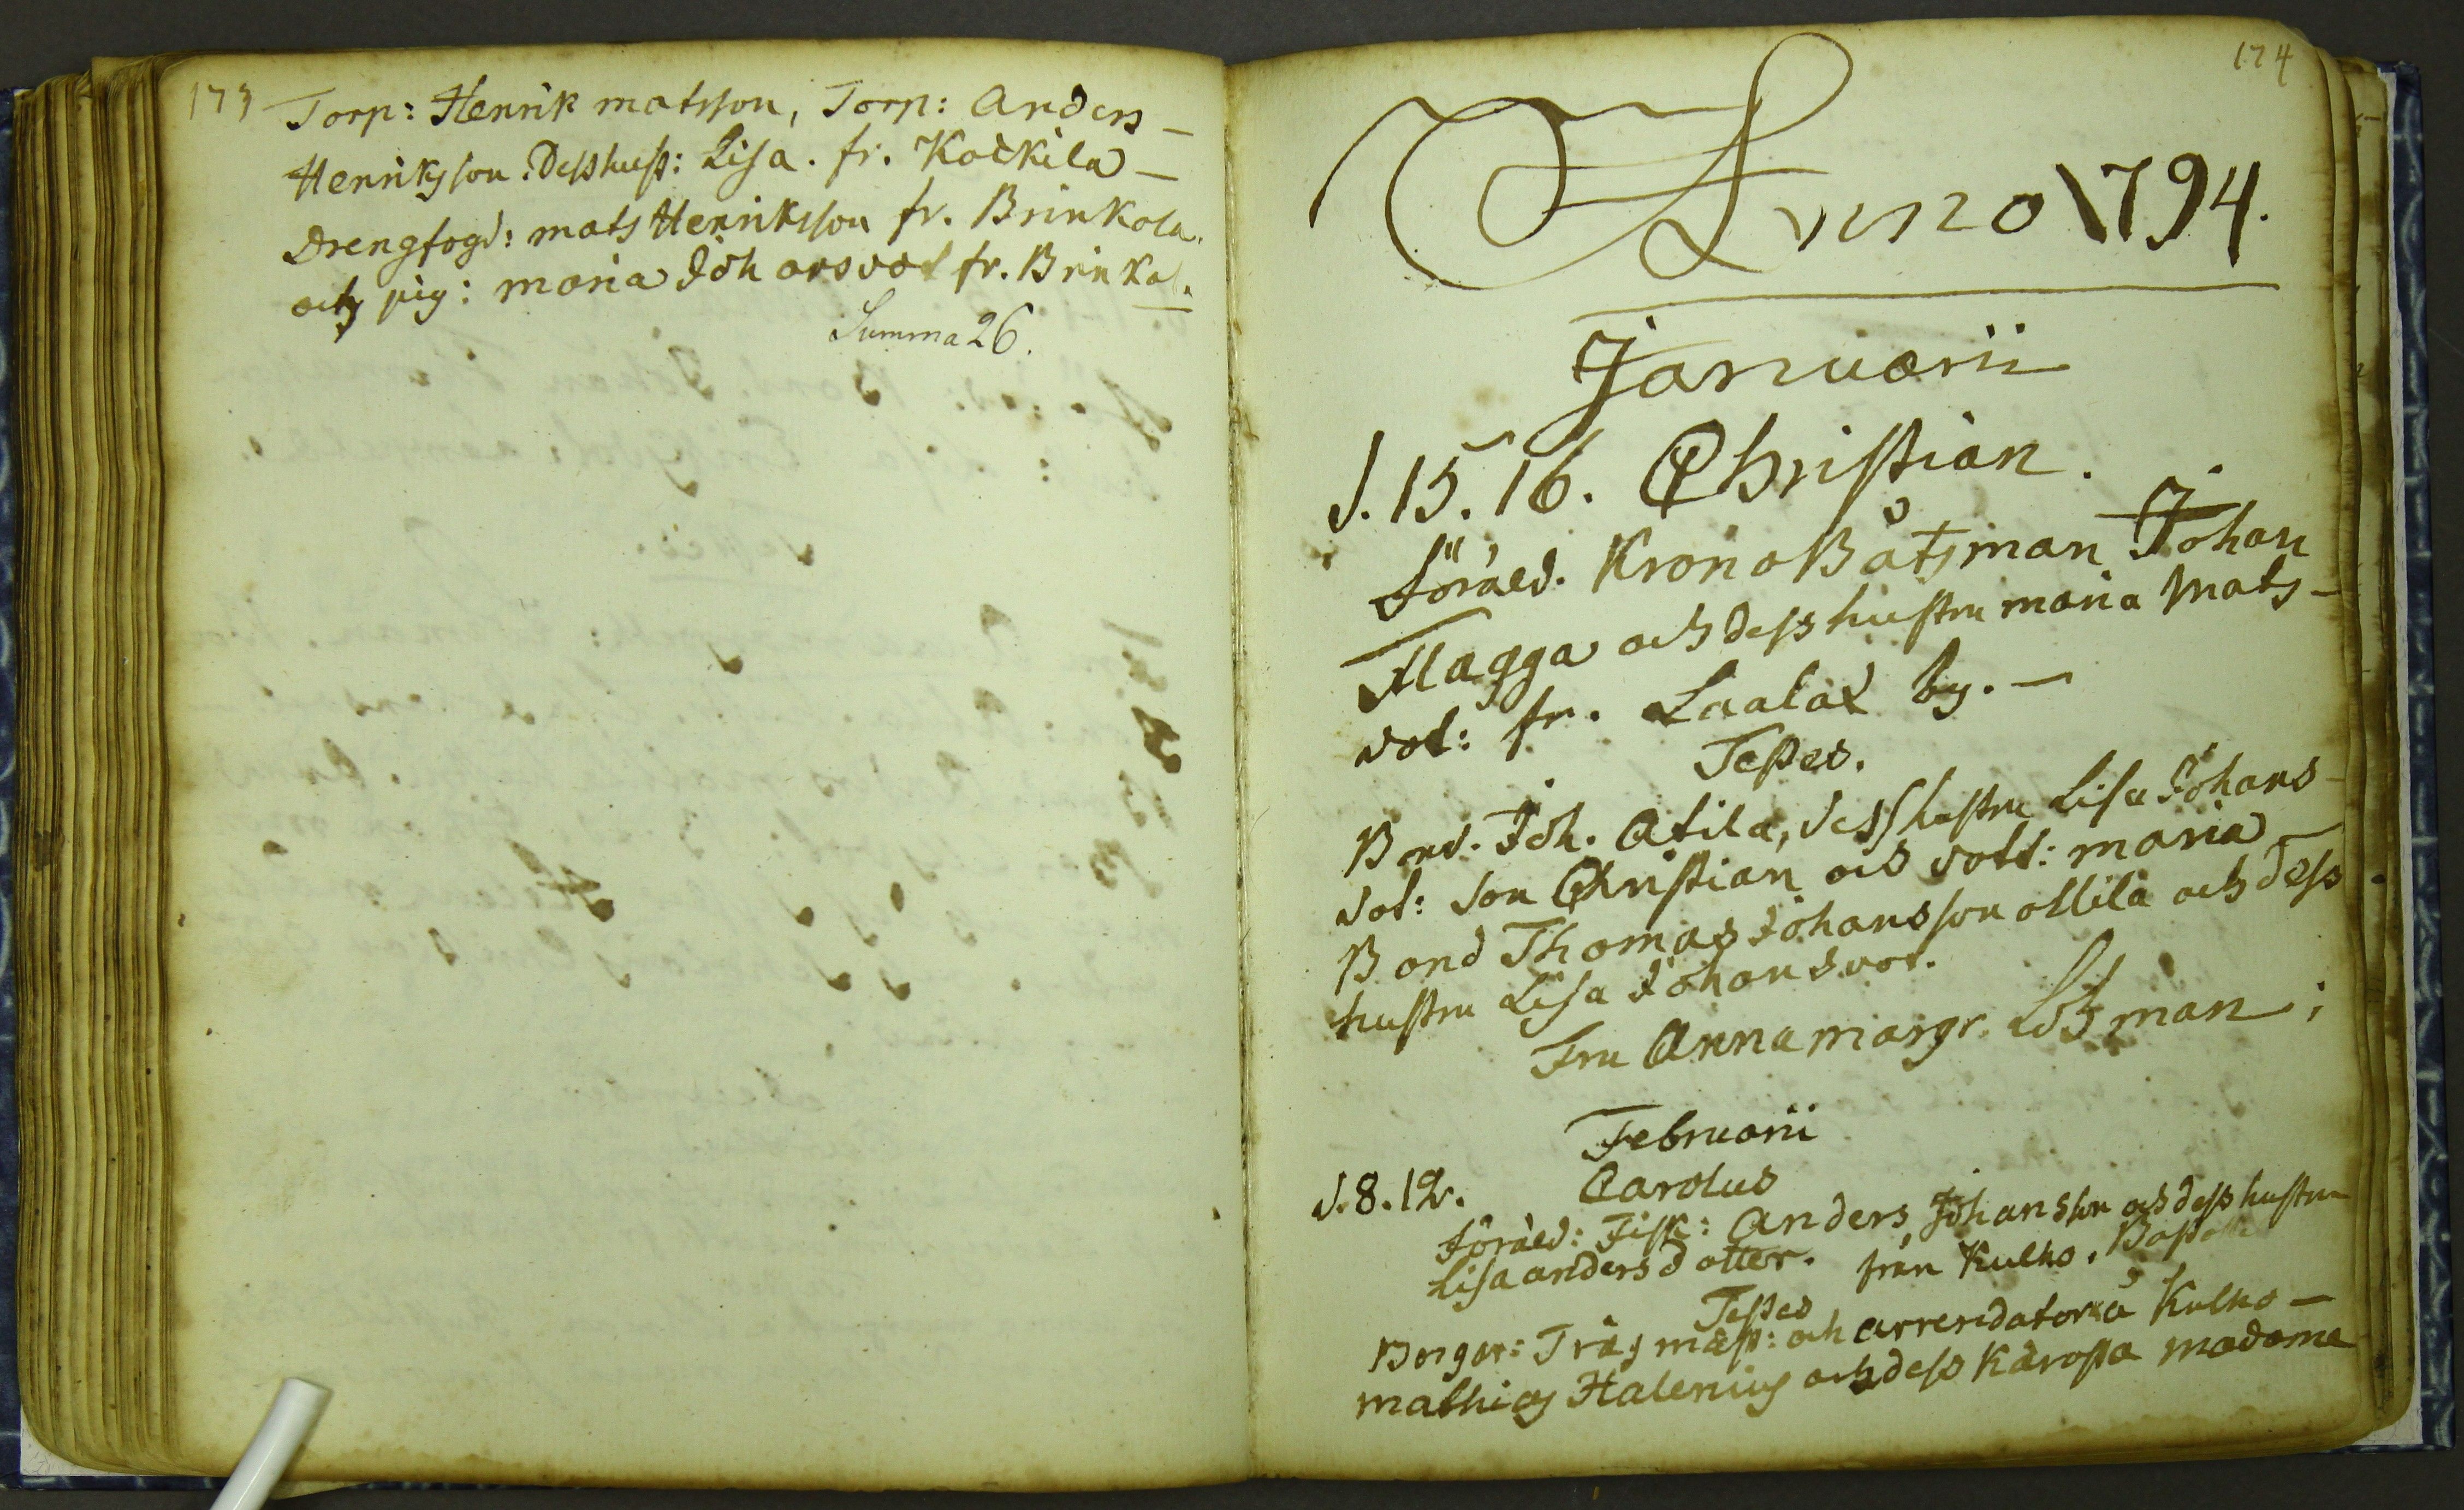 173
Torp: Henrik matsson, Torp: Anders
Henriksson. Desshust: Lisa. fr. Kockila
Drengfogd: mats Henriksson fr. Brinkala.
och pig: maria Joh ansdot fr. Brinkal.
Summa 26.
174
Anno 1794.
Januarii
d. 15. 16. Christian.
föräld. Krono Båtsman Johan
Flagga och dess hustru maria Mats-
dot: fr. Laalax by.
Testes.
Bond. Joh. Atila, dess hustru Lisa Johans-
dot: son Christian och dott: maria
Bond Thomas Johansson ollila och dess
hustru Lisa Johansdot.
Fru Anna margr.
Februarii
d. 8. 12. Carolus
föräld: Fisk: Anders Johansson och dess hustru
Lisa andersdotter. från Kulho.
Testes
Borgar: Träg mäst: och arrendator å Kulho
mathias Halenius och dess Kärasta madame